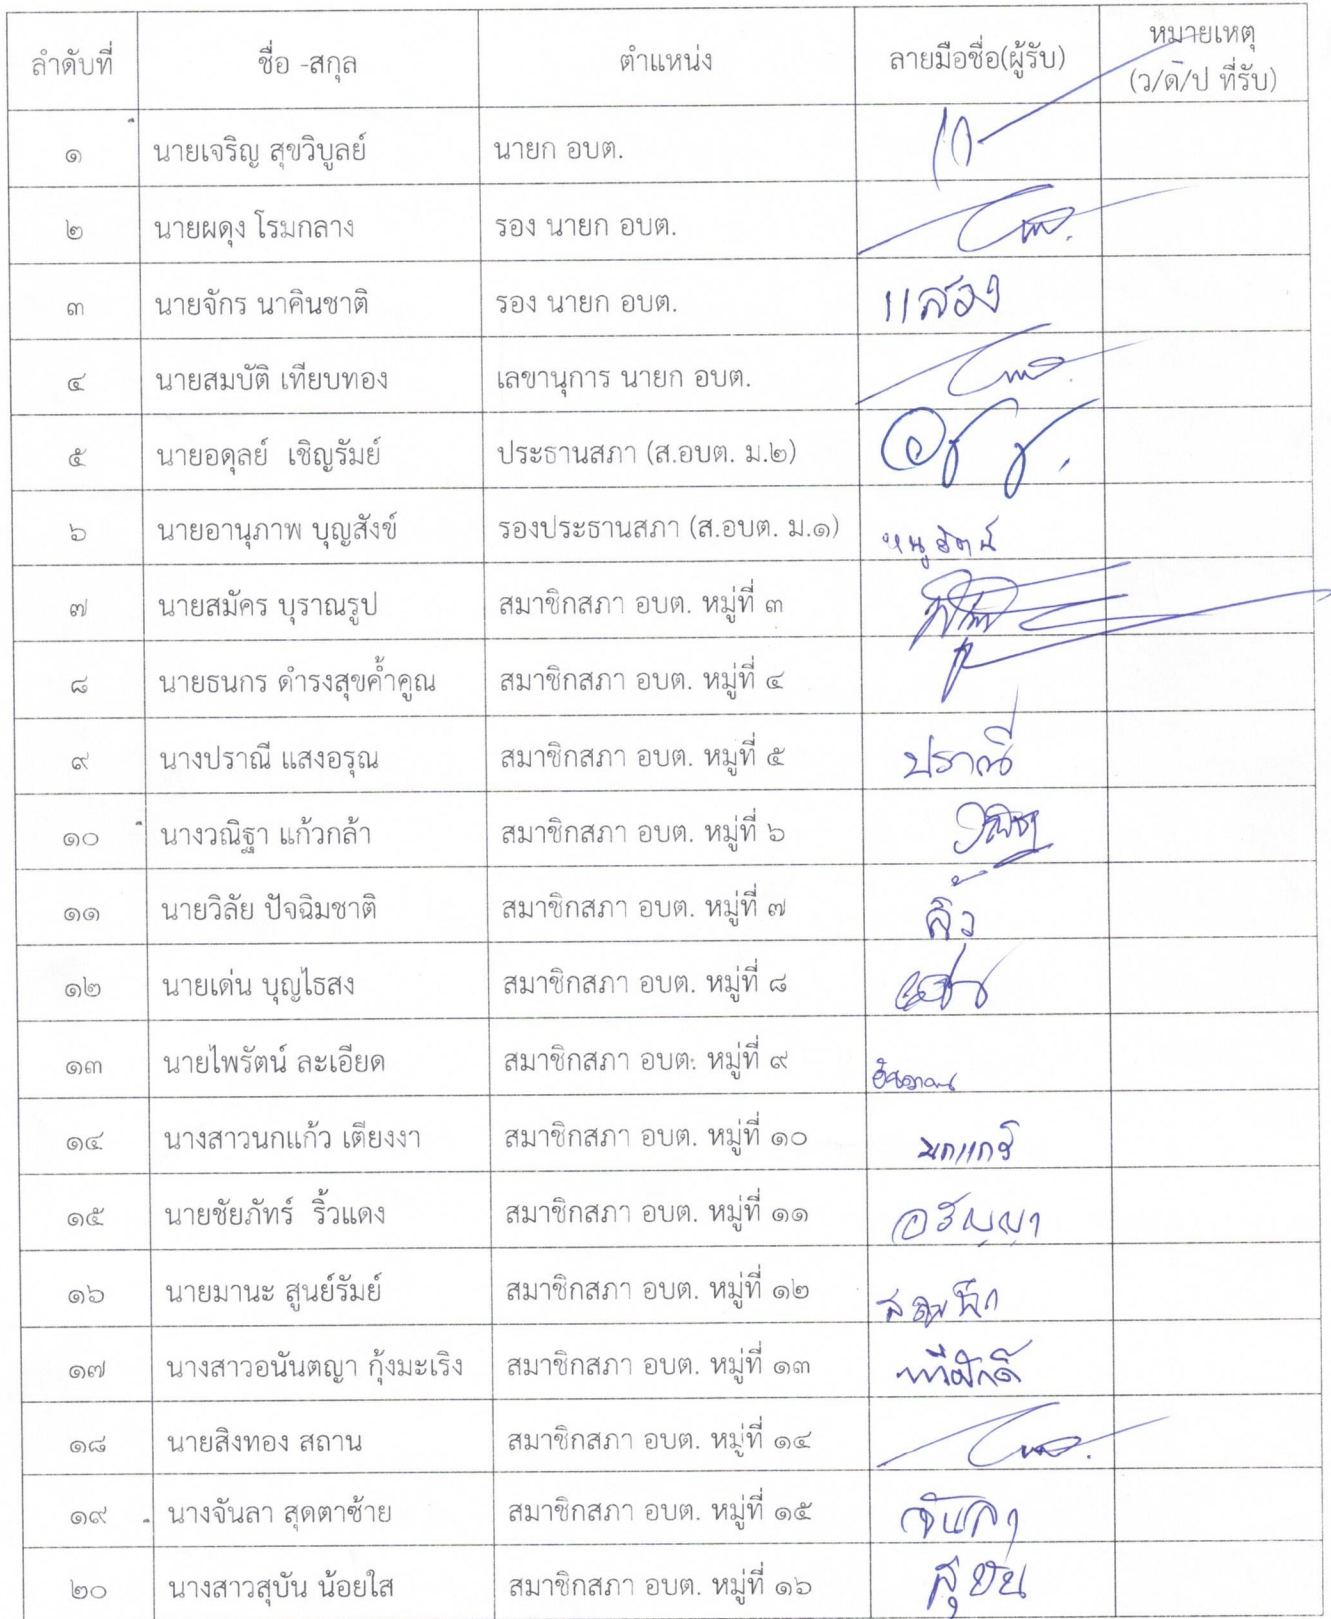 ลำดับที่ ชื่อ -สกุล ตำแหน่ง ลายมือชื่อ(ผู้รับ) หมายเหตุ
(ว/ด/ป ที่รับ)
๑ นายเจริญ สุขวิบูลย์ นายก อบต.
๒ นายผดุง โรมกลาง รอง นายก อบต.
๓ นายจักร นาคินชาติ รอง นายก อบต. แสอง
๔ นายสมบัติ เทียบทอง เลขานุการ นายก อบต.
๕ นายอดุลย์ เชิญรัมย์ ประธานสภา (ส.อบต. ม.๒)
๖ นายอานุภาพ บุญสังข์ รองประธานสภา (ส.อบต. ม.๑)
๗ นายสมัคร บุราณรูป สมาชิกสภา อบต. หมู่ที่ ๓
๘ นายธนกร ดำรงสุขค้ำคูณ สมาชิกสภา อบต. หมู่ที่ ๔
๙ นางปราณี แสงอรุณ สมาชิกสภา อบต. หมู่ที่ ๕ ปราณี
๑๐ นางวณิฐา แก้วกล้า สมาชิกสภา อบต. หมู่ที่ ๖
๑๑ นายวิลัย ปัจฉิมชาติ สมาชิกสภา อบต. หมู่ที่ ๗
๑๒ นายเด่น บุญไธสง สมาชิกสภา อบต. หมู่ที่ ๘
๑๓ นายไพรัตน์ ละเอียด สมาชิกสภา อบต. หมู่ที่ ๙
๑๔ นางสาวนกแก้ว เตียงงา สมาชิกสภา อบต. หมู่ที่ ๑๐ นกแกว้
๑๕ นายชัยภัทร์ ริ้วแดง สมาชิกสภา อบต. หมู่ที่ ๑๑ อรัญญา
๑๖ นายมานะ สูนย์รัมย์ สมาชิกสภา อบต. หมู่ที่ ๑๒
๑๗ นางสาวอนันตญา กุ้งมะเริง สมาชิกสภา อบต. หมู่ที่ ๑๓
๑๘ นายสิงทอง สถาน สมาชิกสภา อบต. หมู่ที่ ๑๔
๑๙ นางจันลา สุดตาซ้าย สมาชิกสภา อบต. หมู่ที่ ๑๕ จันลา
๒๐ นางสาวสุบัน น้อยใส สมาชิกสภา อบต. หมู่ที่ ๑๖ สุบัน